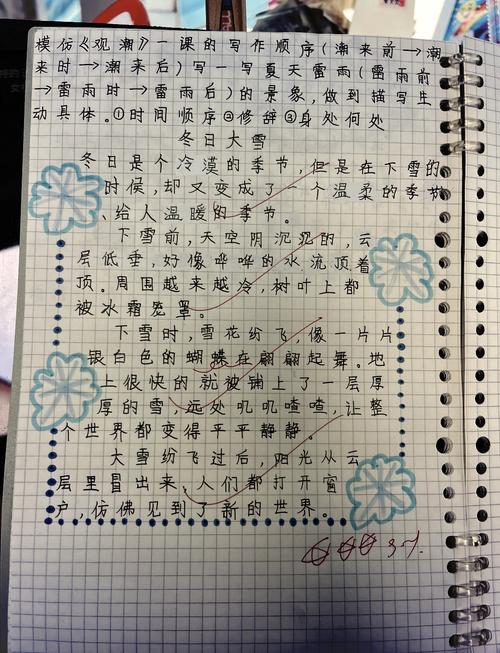 模仿《观潮》一课的写作顺序(潮来前→潮
来时→潮来后)写一写夏天雷雨(雷雨前
→雷雨时→雷雨后)的景象,做到描写生
动具体。①时间顺序②修辞③身处何处
冬日大雪
冬日是个冷漠的季节,但是在下雪的
时候,却又变成了一个温柔的季节
、给人温暖的季节。
下雪前,天空阴沉沉的,云
层低垂,好像哗哗的水流顶着
顶。周围越来越冷,树叶上都
被冰霜笼罩。
下雪时,雪花纷飞,像一片片
银白色的蝴蝶在翩翩起舞。地
上很快的就被铺上了一层厚
厚的雪,远处叽叽喳喳,让整
个世界都变得平平静静。
大雪纷飞过后,阳光从云
层里冒出来,人们都打开窗
户,仿佛见到了新的世界。